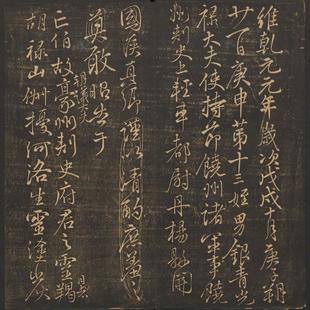 維乾元元年歲次戊戌十月庚子朔
廿一日庚申第十三姪男銀青光
祿大夫使持節饒州諸軍事饒
州刺史上輕車都尉丹楊縣開
國侯真卿謹以清酌庶羞之
奠敢昭告于
亡伯故豪州刺史府君之靈曰羯
胡祿山俶擾河洛生靈塗炭